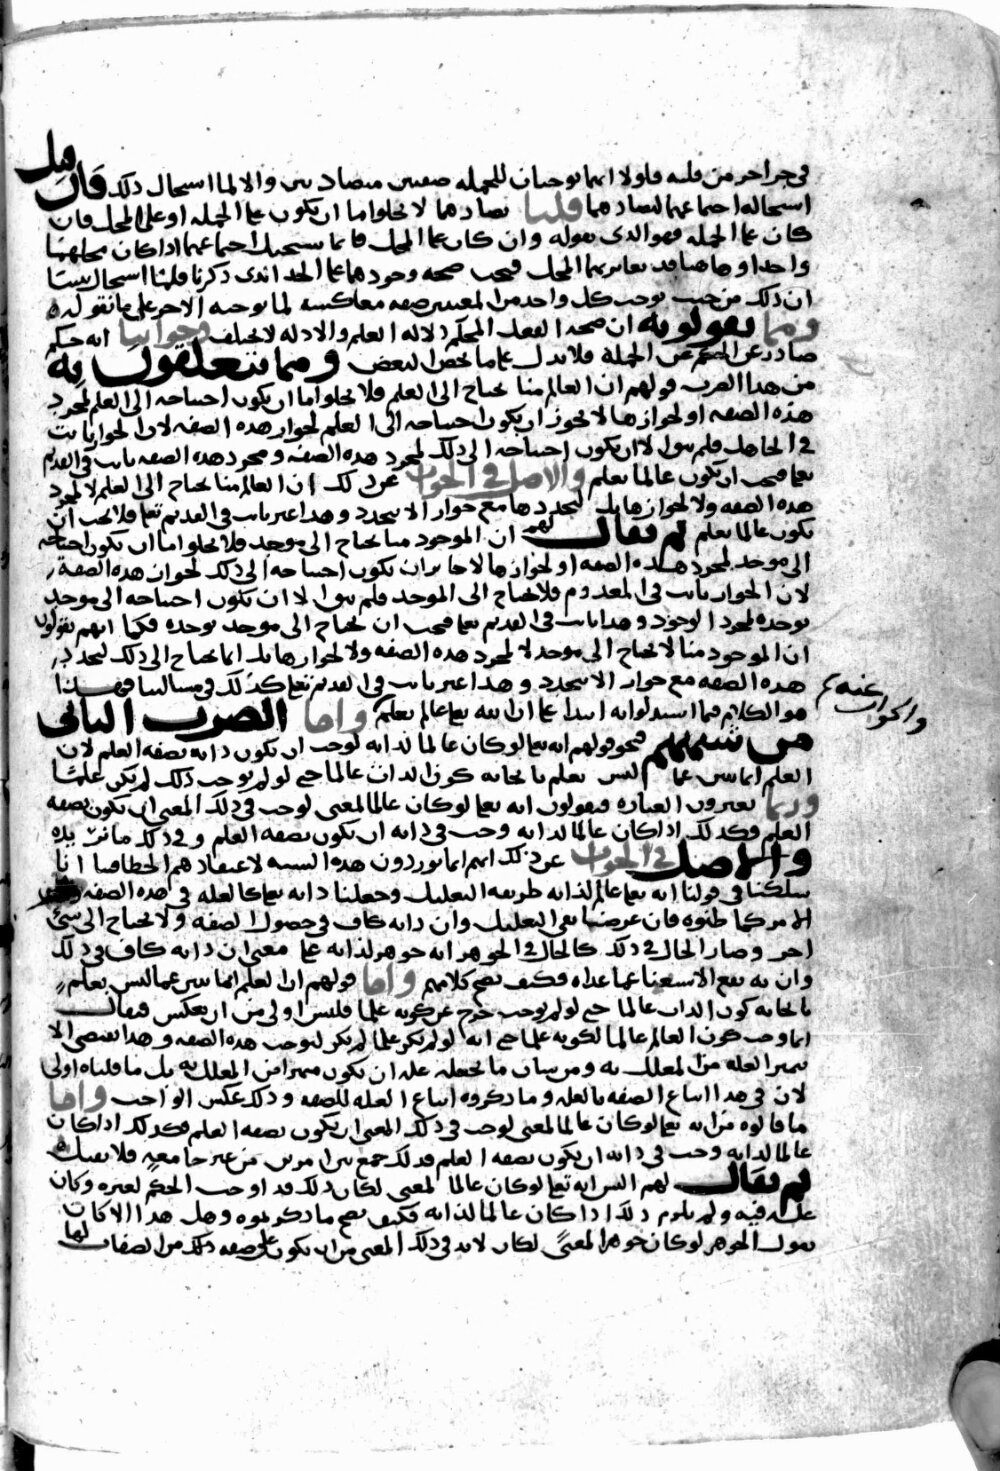 في جزء اخر من قلبه فلولا انهما توجبان للجمله صفتين متضادتين والا لما استحال ذلك فان قيل
استحاله اجتماعهما لتضادهما قلنا تضادهما لا يخلو اما ان يكون على الجمله او على المحل فان
كان على الجمله فهو الذي نقوله وان كان على المحل فانما يستحيل اجتماعهما اذا كان محلهما
واحدا وهاهنا قد تغاير بهما المحل فيجب صحه وجودهما على الحد الذي ذكرنا فلما استحال تبينا
ان ذلك من حيث يوجب كل واحد من المعنيين صفه معاكسه لما يوجبه الاخر على ما نقوله
ومما يقولونه ان صحه الفعل المحكم دلاله العلم والادله لا تختلف وجوابنا انه حكم
صادر عن الجمله فلا يدل على ما يخص البعض ومما يتعلقون به
من هذا الضرب قولهم ان العالم منا يحتاج الى العلم فلا يخلو اما ان يكون احتياجه الى العلم لمجرد
هذه الصفه او لجوازها لا يجوز ان يكون احتياجه الى العلم لجواز هذه الصفه لان الجواز ثابت
في الجاهل فلم يبق الا ان يكون احتياجه الى ذلك لمجرد هذه الصفه ومجرد هذه الصفه ثابت في القديم
تعالى فيجب ان يكون عالما بعلم والاصل في الجواب عن ذلك ان العالم منا يحتاج الى العلم لا لمجرد
هذه الصفه ولا لجوازها بل لتجددها مع جواز الا يتجدد وهذا غير ثابت في القديم تعالى فلا يجب ان
يكون عالما بعلم ثم يقال لهم ان الموجود منا يحتاج الى موجد فلا يخلو اما ان يكون احتياجه
الى موجد لمجرد هذه الصفه او لجوازها لا جائز ان يكون احتياجه الى ذلك لجواز هذه الصفه
لان الجواز ثابت في المعدوم فلا يحتاج الى الموجد فلم يبق الا ان يكون احتياجه الى موجد
يوجده لمجرد الوجود وهذا ثابت في القديم تعالى فيجب ان يحتاج الى موجد يوجده فكما انهم يقولون
ان الموجود منا لا يحتاج الى موجد لا لمجرد هذه الصفه ولا لجوازها بل انما يحتاج الى ذلك لتجدد
هذه الصفه مع جواز الا يتجدد وهذا غير ثابت في القديم تعالى كذلك في مسالتنا فهذا
هو الكلام فيما استدلوا به ابتدا على ان الله تعالى عالم بعلم واما الضرب الثاني
والجواب عنه
من شبههم فنحو قولهم انه تعالى لو كان عالما لذاته لوجب ان يكون ذاته بصفه العلم لان
العلم انما يبين عما ليس بعلم بايجابه كون الذات عالما حتى لو لم يوجب ذلك لم يكن علما
وربما يغيرون العباره فيقولون انه تعالى لو كان عالما لمعنى لوجب في ذلك المعنى ان يكون بصفه
العلم فكذلك اذا كان عالما لذاته وجب في ذاته ان يكون بصفه العلم وفي ذلك ما نريده
والاصل في الجواب عن ذلك انهم انما يوردون هذه الشبهه لاعتقادهم الخطا فينا انا
سلكنا في قولنا انه تعالى عالم لذاته طريقه التعليل وجعلنا ذاته تعالى كالعله في هذه الصفه وليس
الامر كما ظنوه فان غرضنا نفي التعليل وان ذاته كاف في حصول الصفه ولا يحتاج الى شي
اخر وصار الحال في ذلك كالحال في الجوهر انه جوهر لذاته على معنى ان ذاته كاف في ذلك
وان به يقع الاستغنا عما عداه فكيف يصح كلامهم واما قولهم ان العلم انما يبين عما ليس بعلم
بايجابه كون الذات عالما حتى لو لم يوجب خرج عن كونه علما فليس اولى من ان يعكس فيقال
انما وجب كون العالم عالما لكونه علما حتى انه لو لم يكن علما لم يكن ليوجب هذه الصفه وهذا يقتضي الا
تتميز العله من المعلل به ومن شان ما نجعله عله ان يكون متميزا من المعلل به بل ما قلناه اولى
لان في هذا اتباع الصفه بالعله وما ذكروه اتباع العله للصفه وذلك عكس الواجب واما
ما قالوه من انه تعالى لو كان عالما لمعنى لوجب في ذلك المعنى ان يكون بصفه العلم فكذلك اذا كان
عالما لذاته وجب في ذاته ان يكون بصفه العلم فذلك جمع بين امرين من غير جامعه فلا يقبل
ثم يقال لهم اليس انه تعالى لو كان عالما لمعنى لكان ذلك قد اوجب الحكم لغيره وكان
عله فيه ولم يلزم ذلك اذا كان عالما لذاته فكيف يصح ما ذكرتموه وهل هذا الا كان
يقول الجوهر لو كان جوهرا لمعنى لكان لا بد في ذلك المعنى من ان يكون على صفه ذلك من الصفات لها